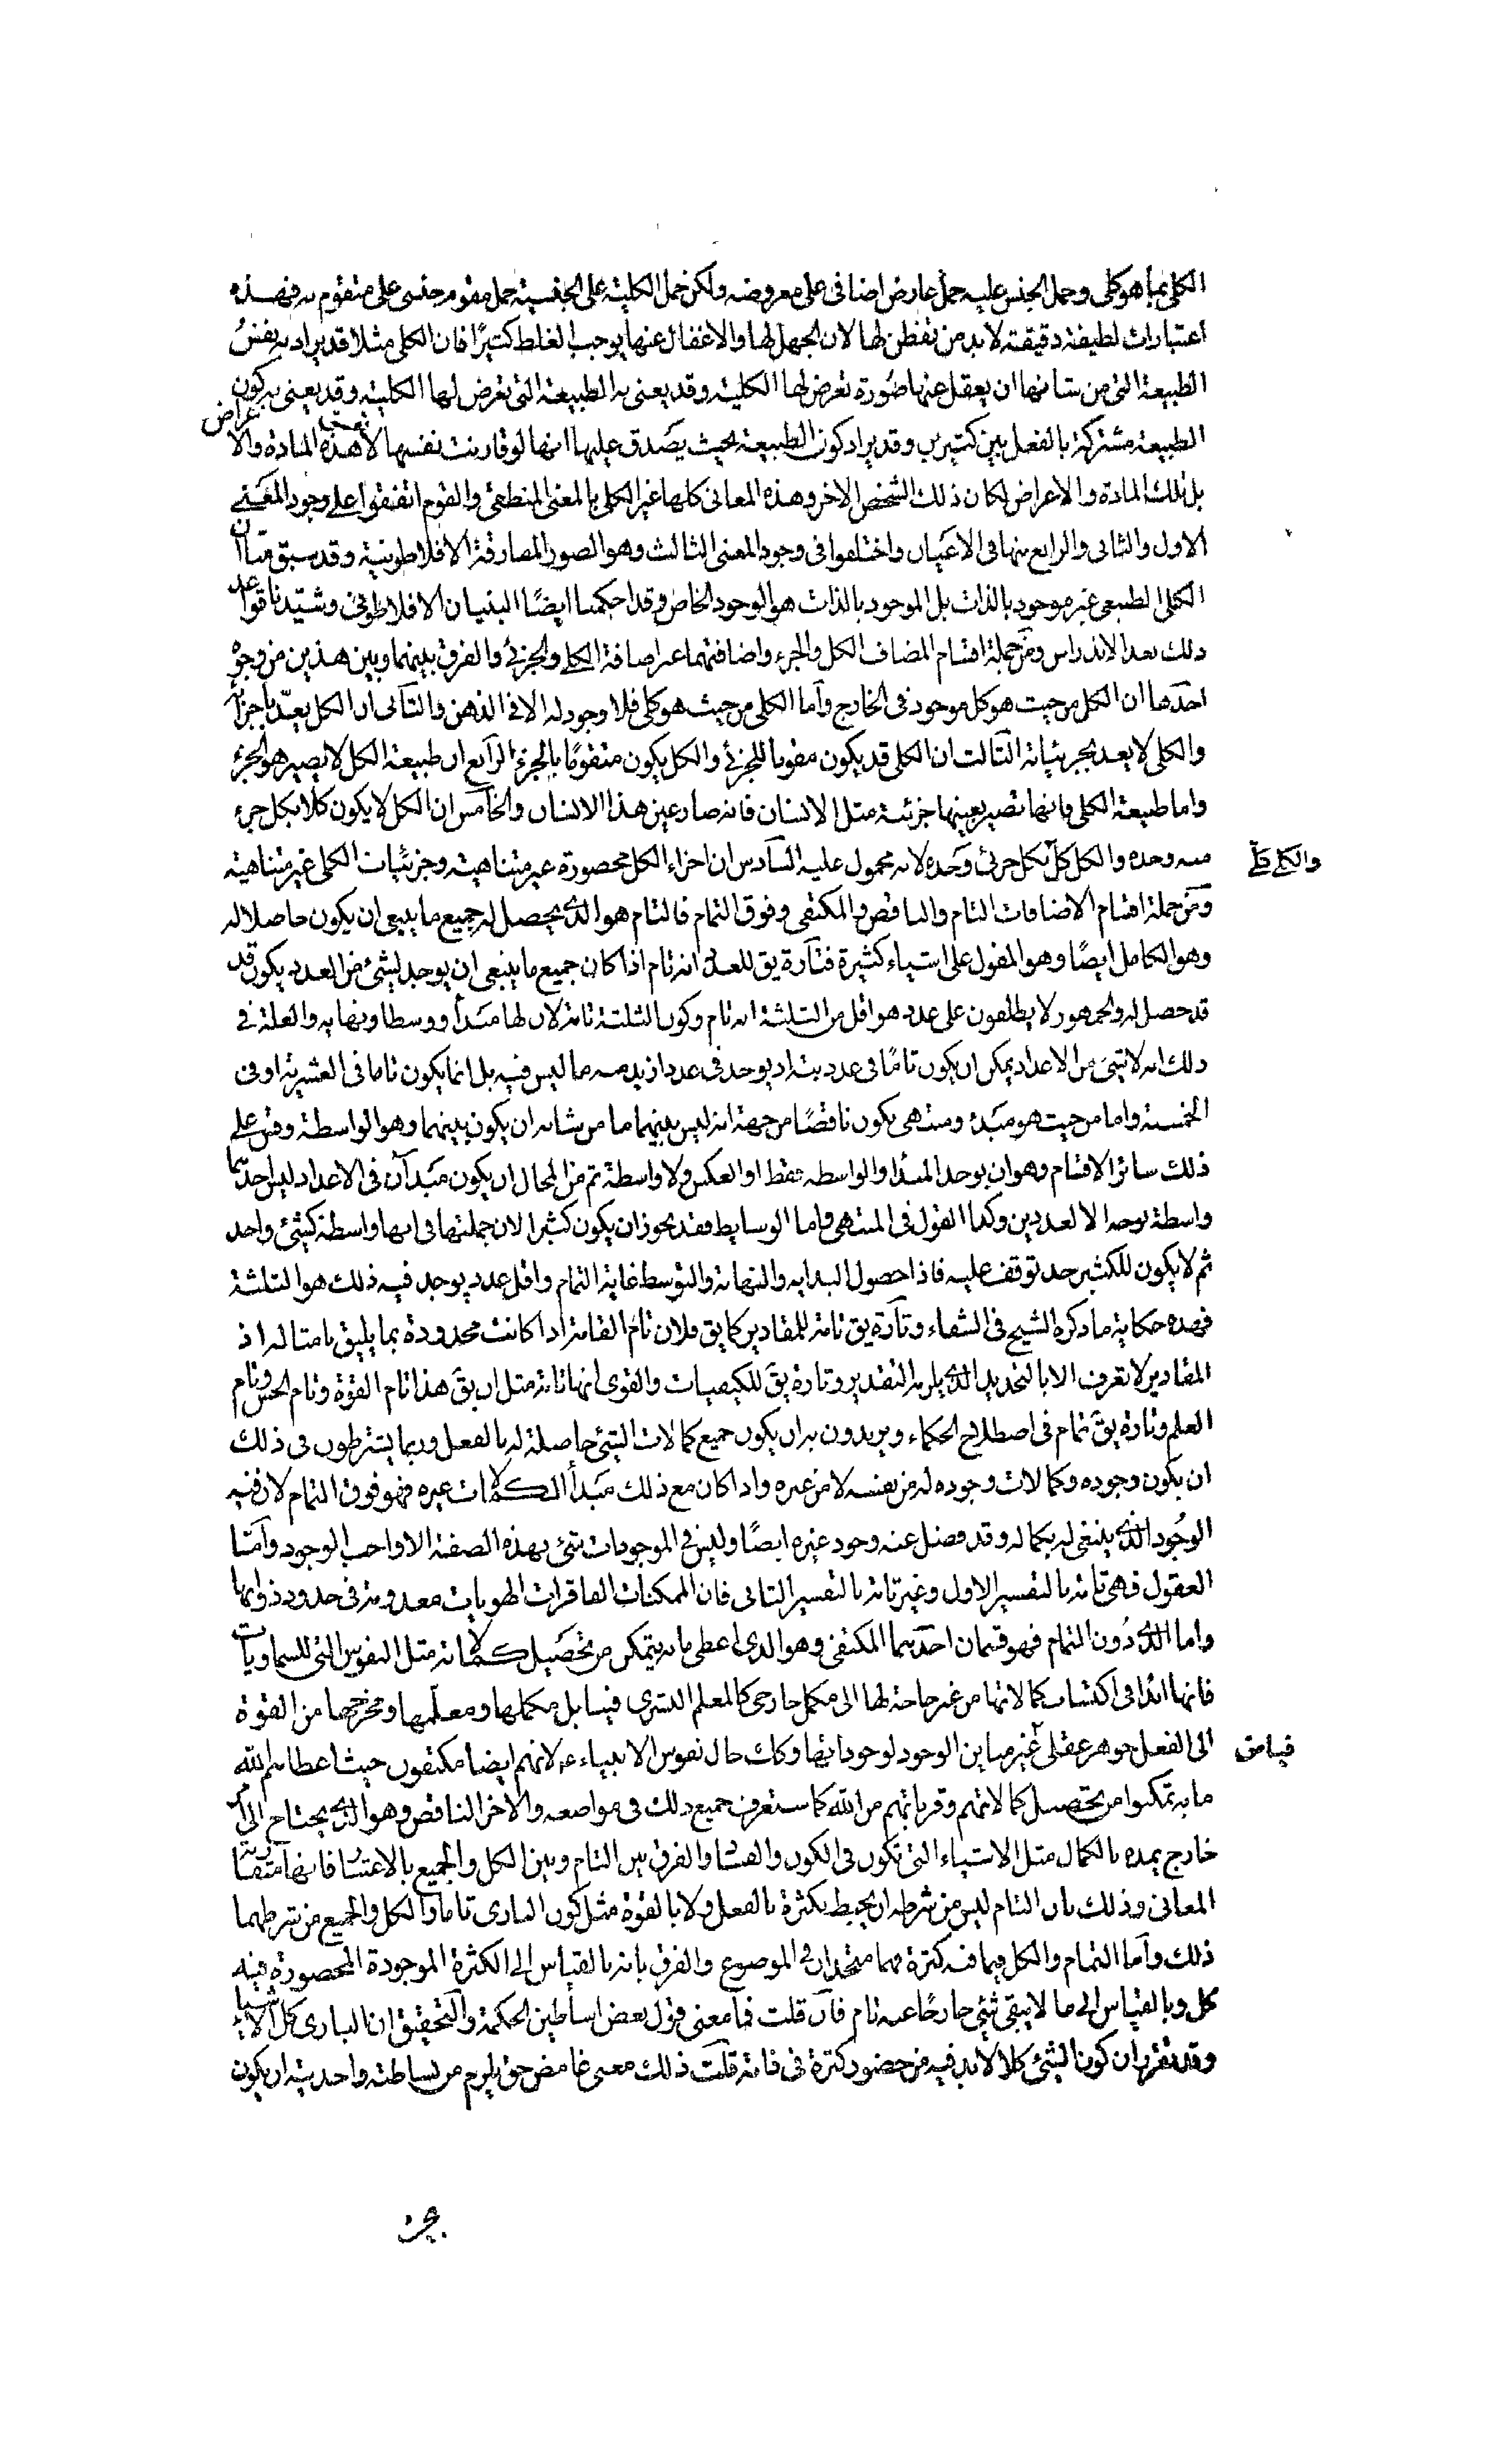 الكلي بما هو كلي وحمل الجنس عليه حمل عارض اضافى على معروضه ولكن حمل الكلية على الجنسية حمل مقوم جنسى على متقوم به فهذه
اعتبارات لطيفة دقيقة لا بد من تفطن لها لان الجهل لها والاغفال عنها يوجب الغلط كثيرًا فان الكلى مثلا قد يراد به نفسُ
الطبيعة التى من شانها ان يعقل عنها صُورة تعرض لها الكلية وقد يعنى به الطبيعة التى تعرض لها الكلية وقد يعنى به كون
الطبيعة مشتركة بالفعل بين كثيرين وقد يراد كون الطبيعة بحيث يصَدق عليها انها لو قارنت نفسها لا هذه المادة والاعراض
بل تلك المادة والاعراض لكان ذلك الشخص الاخر وهذه المعانى كلها غير الكلى بالمعنى المنطقى والقوم اتفقوا على وجود المعَنى
الاول والثانى والرابع منها فى الاعيان واختلفوا فى وجود المعنى الثالث وهو الصور المفارقة الافلاطونية وقد سبق منا ان
الكلى الطبيعى غير موجود بالذات بل الموجود بالذات هو الوجود الخاص وقد احكمنا ايضًا البنيان الافلاطونى وشيّدنا قواعد
ذلك بعد الاندراس ومن جملة اقسام المضاف الكل والجزء واضافتهما غير اضافة الكلى والجزئى والفرق بينهما وبين هذين من وجوه
احدها ان الكل من حيث هو كل موجود فى الخارج واما الكلى من حيث هو كلى فلا وجود له الا فى الذهن والثانى ان الكل يعدّ باجزائه
والكلى لا يعد بجزئياته الثالث ان الكلى قد يكون مقوما للجزئى والكل يكون متقومًا بالجزء الرابع ان طبيعة الكل لا يصير هو الجزء
واما طبيعة الكلى فانها تصير بعينها جزئية مثل الانسان فانه صار عين هذا الانسان والخامس ان الكل لا يكون كلا بكل جزء
منه وحده والكل كل بكل جزئى وحَده لانه محمول عليه السادس ان اجزاء الكل محصورة غير متناهية وجزئيات الكلى غير متناهية
والكلى كلى
ومن جملة اقسام الاضافات التام والناقص والمكتفى وفوق التمام فالتام هو الذى يحصل له جميع ما ينبغى ان يكون حاصلا له
وهو الكامل ايضًا وهو المقول على اشياء كثيرة فتارة يق للعدد انه تام اذا كان جميع ما ينبغى ان يوجد لشئ من العدد يكون قد
قد حصل له والجمهور لا يطلقون على عدد هو اقل من الثلثة انه تام وكون الثلثة تامة لان لها مَبدأ ووسطا ونهاية والعلة فى
ذلك انه لا شئ من الاعداد يمكن ان يكون تامًا فى عدديته اذ يوجد فى عدد ازيد منه ما ليس فيه بل انما يكون تاما فى العشرية او فى
الخمسية واما من حيث هو مبَدء ومنتهى يكون ناقصًا من جهة انه ليس بينهما ما من شانه ان يكون بينهما وهو الواسطة وقس على
ذلك سائر الاقسام وهو ان يوجد المبدا والواسطة فقط او العكس ولا واسطة ثم من المحال ان يكون مَبدآن فى الاعداد ليس احدهما
واسطة بوجه الا لعددين وكذا القول فى المنتهى واما الوسايط فقد يجوز ان يكون كثيرا لان جملتها فى انها واسطة كشئ واحد
ثم لا يكون للكثير حد توقف عليه فاذا حصول البداية والنهاية والتوسط غاية التمام واقل عدد يوجد فيه ذلك هو الثلثة
فهذه حكاية ما ذكره الشيخ فى الشفاء وتآرة يق تامة للمقادير كما يق فلان تام القامة اذا كانت محدودة بما يليق بامثاله اذ
المقادير لا تعرف الا بالتحديد الذى يلزمه التقدير وتارة يقَ للكيفيات والقوى انها تامة مثل ان يقَ هذا تام القوة وتام الحسن وتام
العلم وتارة يقَ تمام فى اصطلاح الحكماء ويريدون به ان يكون جميع كمالات الشئ حاصلة له بالفعل وربما يشترطون فى ذلك
ان يكون وجوده وكمالات وجوده له من نفسه لا من غيره واذا كان مع ذلك مَبدأ لكمالات غيره فهو فوق التمام لان فيه
الوجُود الذى ينبغى له بكماله وقد فضل عنه وجود غيره ايضًا وليس فى الموجودات شئ بهذه الصفة الا واجب الوجود وآمّا
العقول فهى تامة بالتفسير الاول وغير تامة بالتفسير الثانى فان الممكنات الفاقرات الهويات معدومة فى حدود ذواتها
واما الذى دُون التمام فهو قسمان احدهما المكتفى وهو الذى اعطى ما به يتمكن من تحصَيل كمالاته مثل النفوس التى للسماويات
فانها ابدا فى اكتساب كمالاتها من غير حاجة لها الى مكمل خارجى كالمعلم البشرى فينا بل مكملها ومعلّمها ومخرجها من القوة
الى الفعل جوهر عقلى غير مباين الوجود لوجوداتها وكك حال نفوس الانبياء ع لانهم ايضا مكتفون حيث اعطاهم الله
ما به تمكنوا من تحصيل كمالاتهم وقرباتهم من الله كما ستعرف جميع ذلك فى مواضعه والاخر الناقص وهو الذى يحتاج الى امر
خارج يمده بالكمال مثل الاشياء التى تكون فى الكون والفساد والفرق بين التام وبين الكل والجميع بالاعتبار فانها متقاربة
المعانى وذلك بان التام ليس من شرطه ان يحيط بكثرة بالفعل ولا بالقوة مثل كون البارى تاما واما الكل والجميع من شرطهما
ذلك وآما التمام والكل فيما فيه كثرة فهما متحدان فى الموضوع والفرق بانه بالقياس الى الكثرة الموجودة المحصورة فيه
كل وبالقياس الى ما لا يبقى شئ خارجًا عنه تام فآن قلت فما معنى قول بعض اساطين الحكمة والتحقيق ان البارى كل الاشياء
وقد تقرر ان كون الشئ كلا لا بد فيه من حضور كثرة فى ذاته قلت ذلك معنى غامض حق يلزم من بساطته واحديته ان يكون